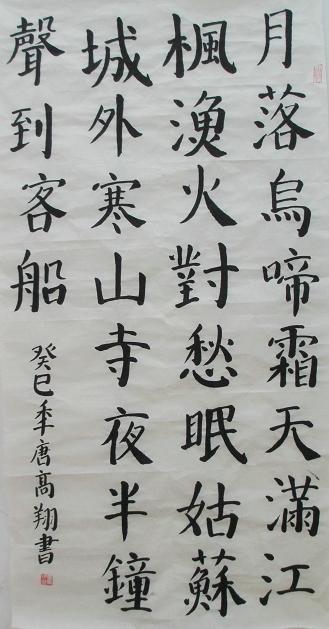 月落烏啼霜天滿江
楓漁火對愁眠姑蘇
城外寒山寺夜半鐘
聲到客船
癸巳年唐高翔書